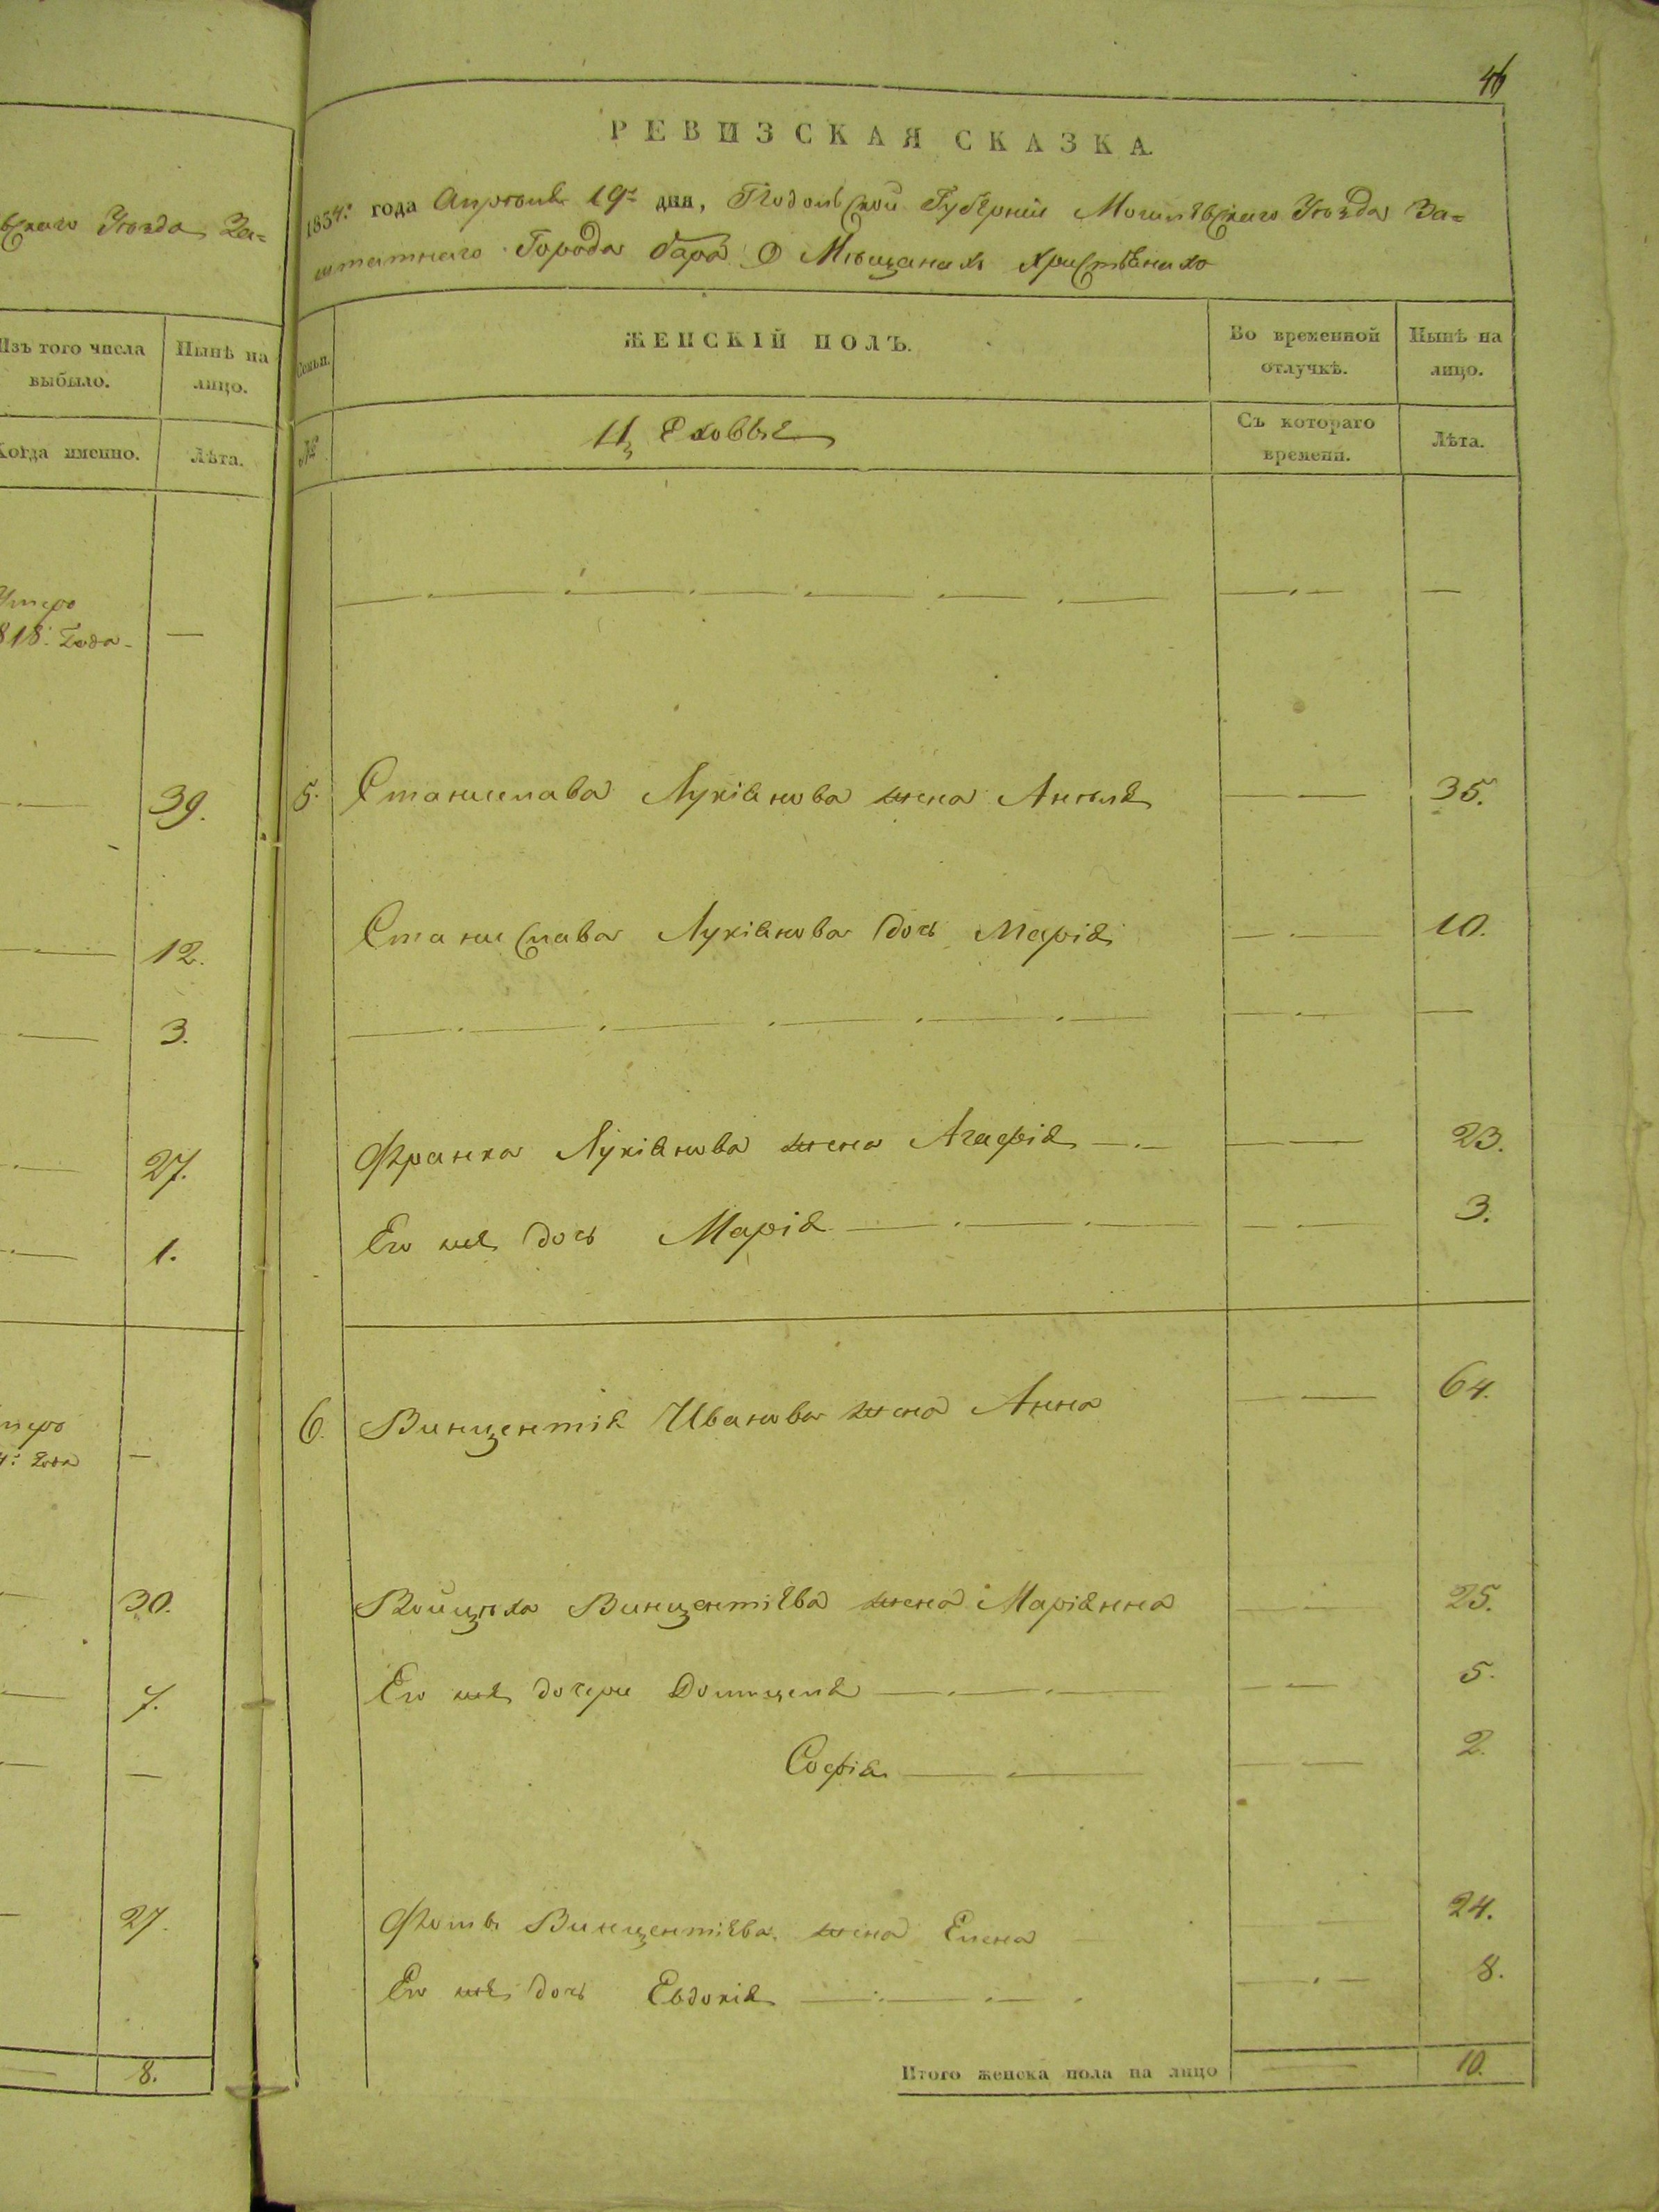 вскаго Уѣзда За=
Изъ того числа выбыло.
Нынѣ на лицо.
Когда именно.
Лѣта.
Умеръ
818: Года - —
39.
12.
3.
27.
1.
меръ
4: Года —
30.
7.
—
27.
8.
46
РЕВИЗСКАЯ СКАЗКА.
1834: года Апрѣля 19: дня, Подольской Губерніи Могилевскаго Уѣзда За=
штатнаго Города бара О Мѣщанахъ христіянахъ
Семьи.
ЖЕНСКІЙ ПОЛЪ.
Во временной отлучкѣ.
Нынѣ на лицо.
№
Цеховые
Съ котораго времени.
Лѣта.
5. Станислава Лукіянова жена Анѣля 35.
Станислава Лукіянова дочь Марія 10.
Франка Лукіянова жена Агафія 23.
Его же дочь Марія 3.
6. Винцентія Иванова жена Анна 64.
Войцѣха Винцентіева жена Маріянна 25.
Его же дочери Домицеля 5.
Софія 2.
Винцентіева жена Елена 24.
Его же дочь Евдокія 8.
Итого женска пола на лицо 10.